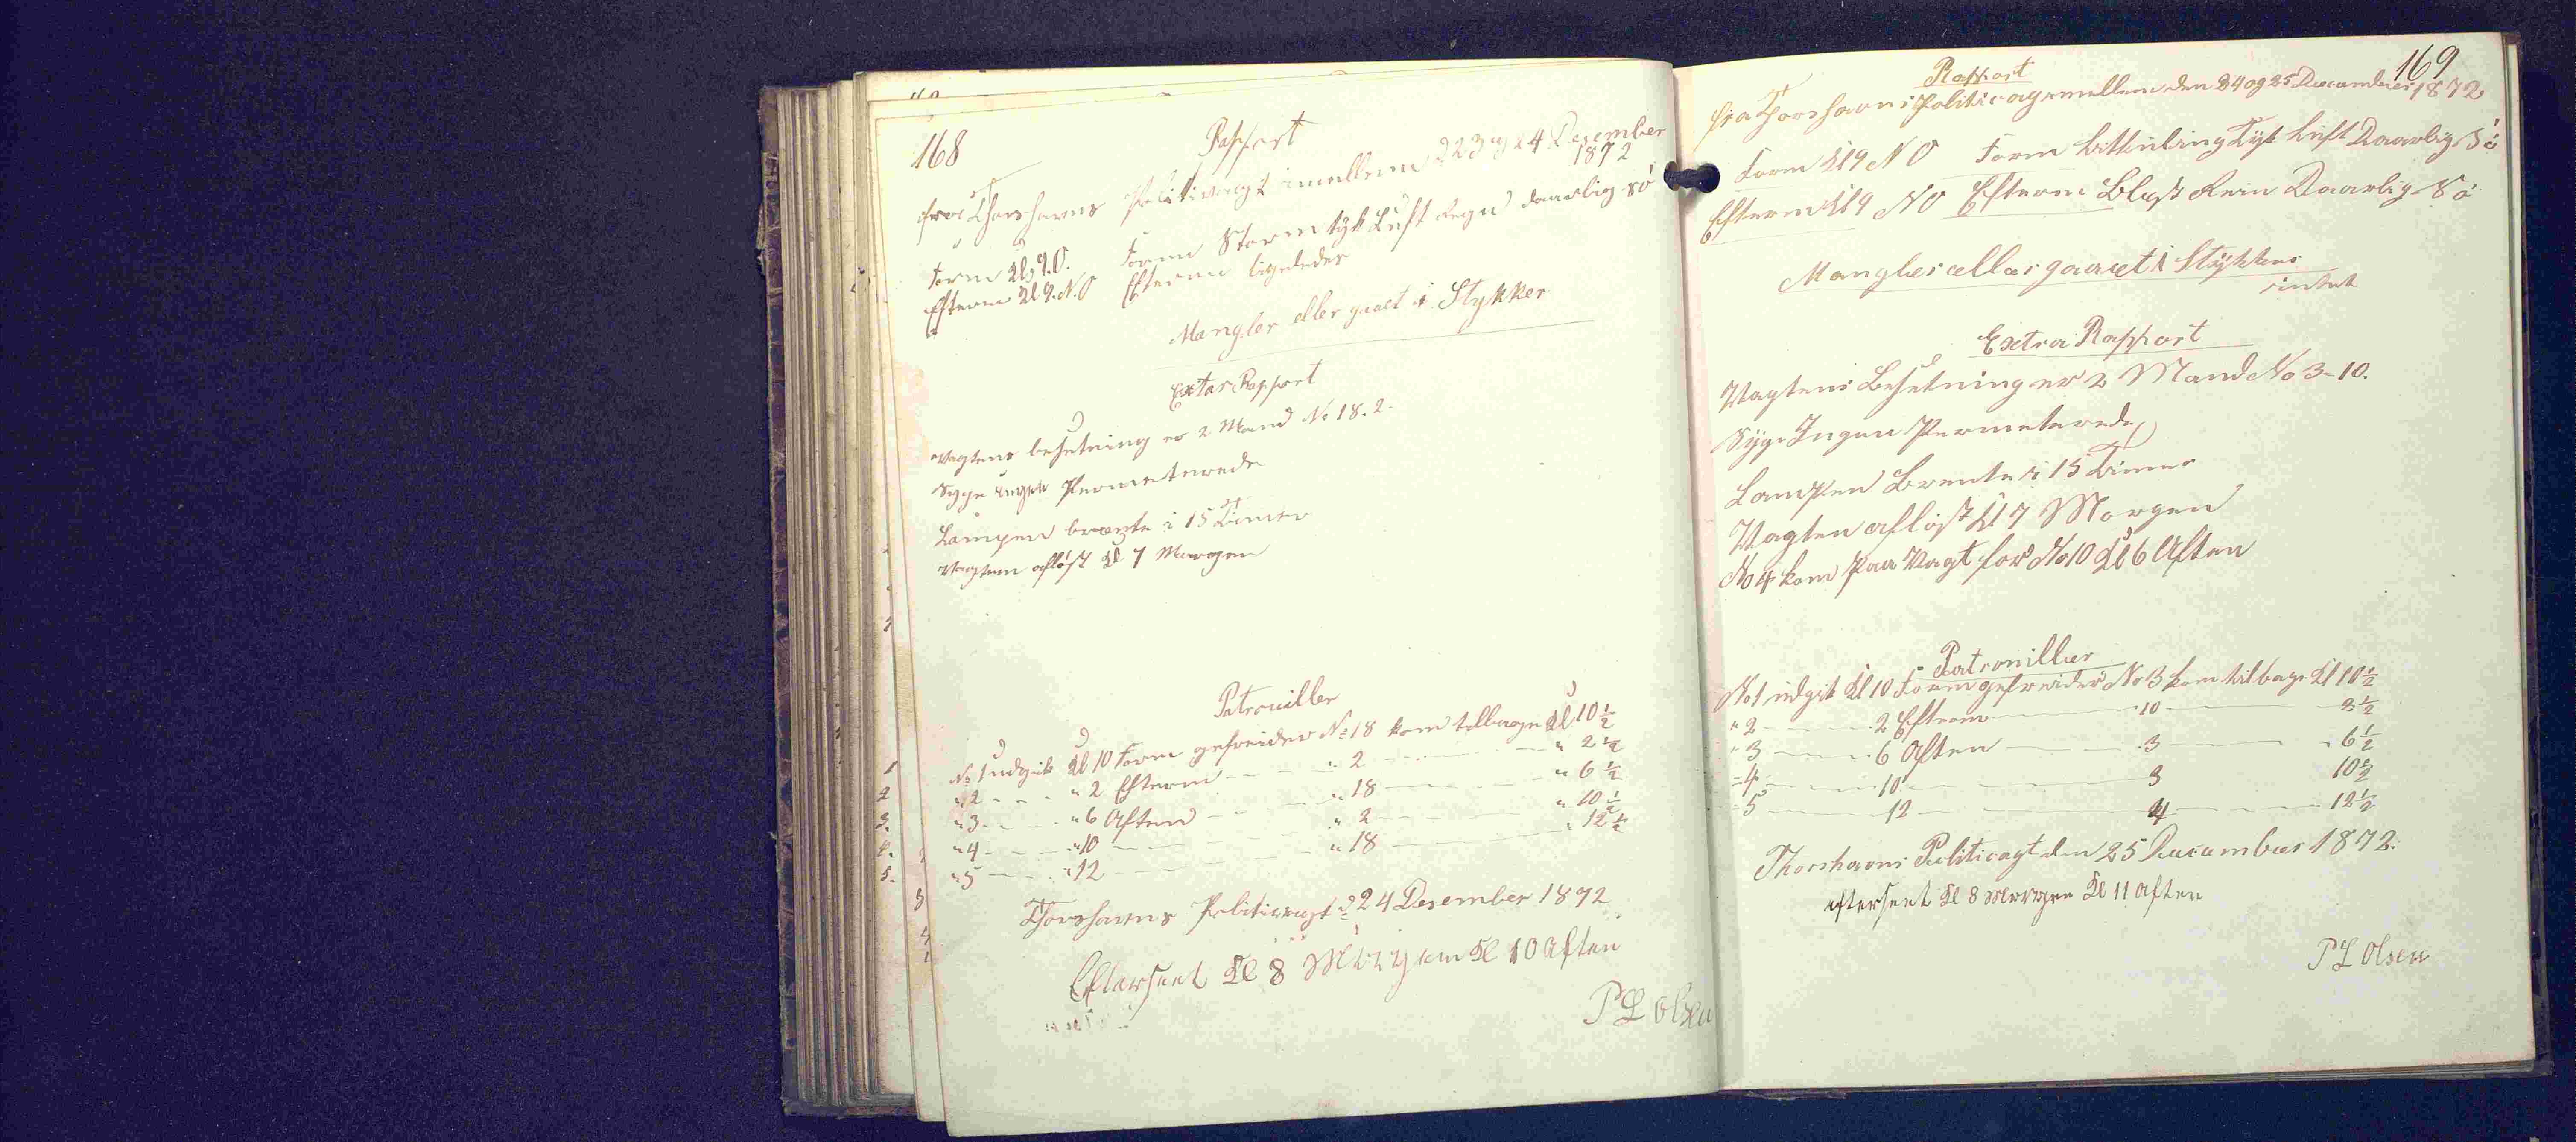 168
Rapport
fra Thorshavns Politivagt imellem d 23 og 24 Desember
1872
Form Kl. 9. O. Form Storm tyk Luft Regn daarlig Sö
Efterm Kl 9. N. O Efterm ligeledes
Mangler eller gaaet i Stykker
Extar Rapport
Vagtens besetning er 2 Mand No 18. 2.
Syge ingen Permeterede
Lampen brænte i 15 Timer
Vagten aflöst Kl 7 Morgen
Patrouiller
No 1 udgik Kl 10 Form gefreider No 18 kom tilbage Kl 10 ½
" 2 " 2 Efterm " 2 " 2 ½
" 3 " 6 Aften " 18 " 6 ½
" 4 " 10 " 2 " 10 ½
" 5 " 12 " 18 " 12 ½
Thorshavns Politivagt d 24 Desember 1872
Efterseet Kl 8 Morgen Kl 10 Aften
P L Olsen
169
Rapport
fra Thorshavns Politivagt mellem den 24 og 25 Decembder 1872
Form Kl 9 N O Form Litkuling Tyk Luft Daarlig Sö
Efterm Kl 9 N O Efterm Blest Rein Daarlig Sö
Mangler eller gaaet i Stykker
intet
Extra Rapport
Vagtens Besetning er 2 Mand No 3-10.
Syge Ingen Permeterede
Lampen Brente i 15 Timer
Vagten aflöst Kl 7 Morgen
No 4 kom paa Vagt for No 10 Kl 6 Aften
Patrouiller
No 1 udgik Kl 10 Form gefreider No 3 kom tilbage Kl 10 ½
" 2 2 Efterm 10 2 ½
" 3 6 Aften 3 6 ½
" 4 10 3 10 ½
" 5 12 4 12 ½
Thorshavns Politivagt den 25 December 1872.
efterseet Kl 8 Morgen Kl 11 Aften
P L Olsen